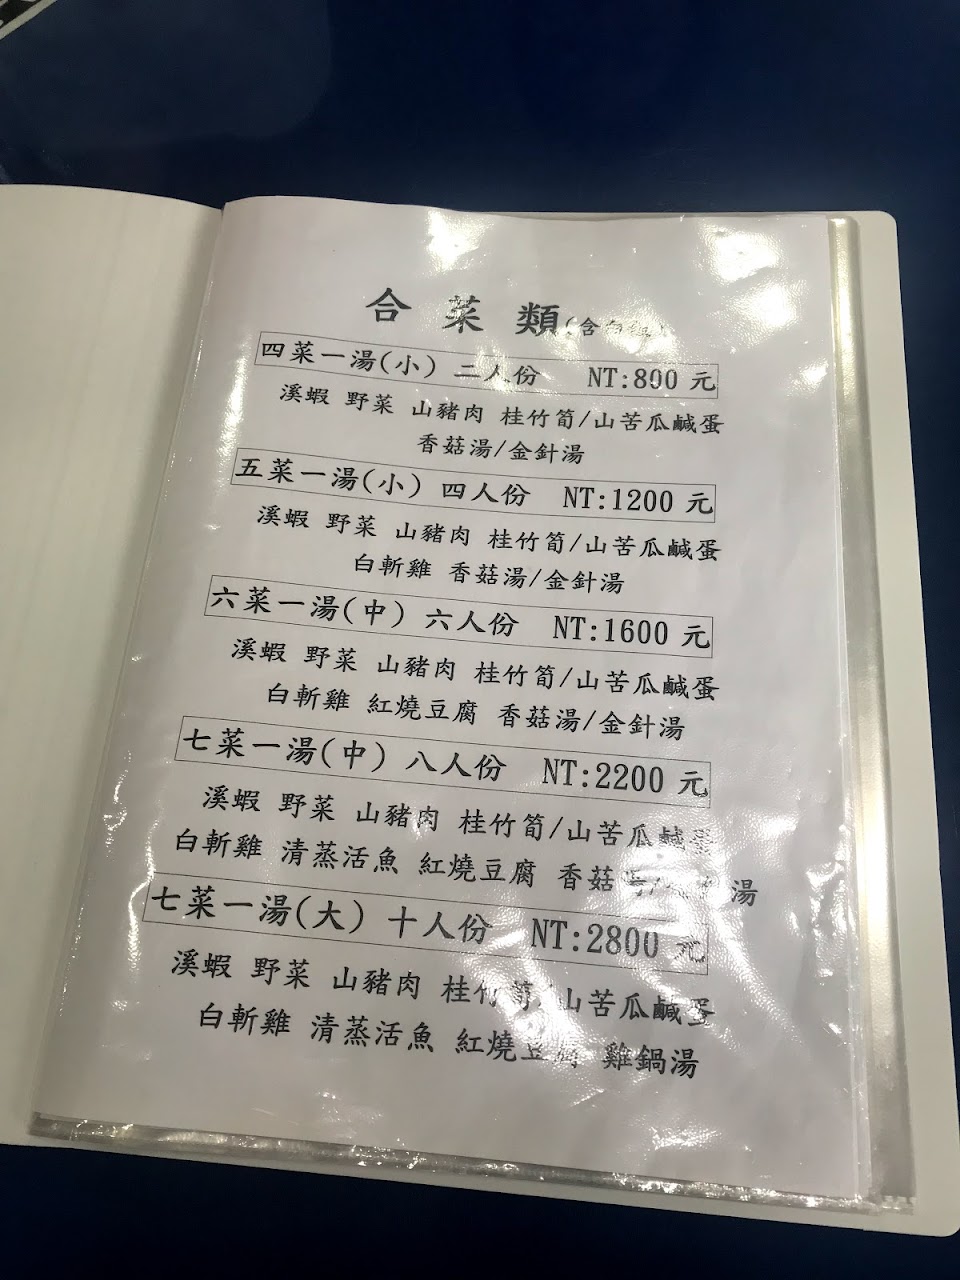 合菜類(含白飯)
四菜一湯(小) 二人份 NT:800 元
溪蝦 野菜 山豬肉 桂竹筍/山苦瓜鹹蛋
香菇湯/金針湯
五菜一湯(小) 四人份 NT:1200 元
溪蝦 野菜 山豬肉 桂竹筍/山苦瓜鹹蛋
白斬雞 香菇湯/金針湯
六菜一湯(中) 六人份 NT:1600 元
溪蝦 野菜 山豬肉 桂竹筍/山苦瓜鹹蛋
白斬雞 紅燒豆腐 香菇湯/金針湯
七菜一湯(中) 八人份 NT:2200 元
溪蝦 野菜 山豬肉 桂竹筍/山苦瓜鹹蛋
白斬雞 清蒸活魚 紅燒豆腐 香菇湯/金針湯
七菜一湯(大) 十人份 NT:2800 元
溪蝦 野菜 山豬肉 桂竹筍/山苦瓜鹹蛋
白斬雞 清蒸活魚 紅燒豆腐 雞鍋湯